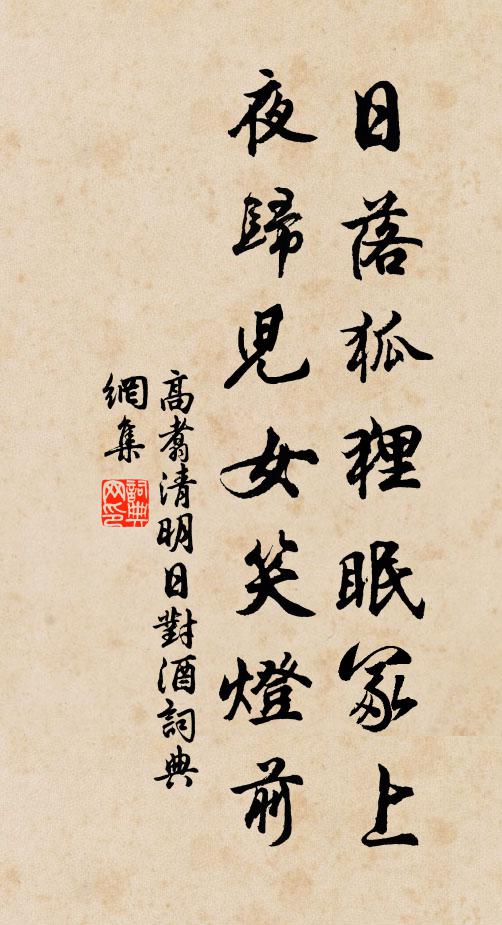 日落狐狸眠冢上
夜歸兒女笑燈前
高翥清明日對酒詞典
網集
詞典網印